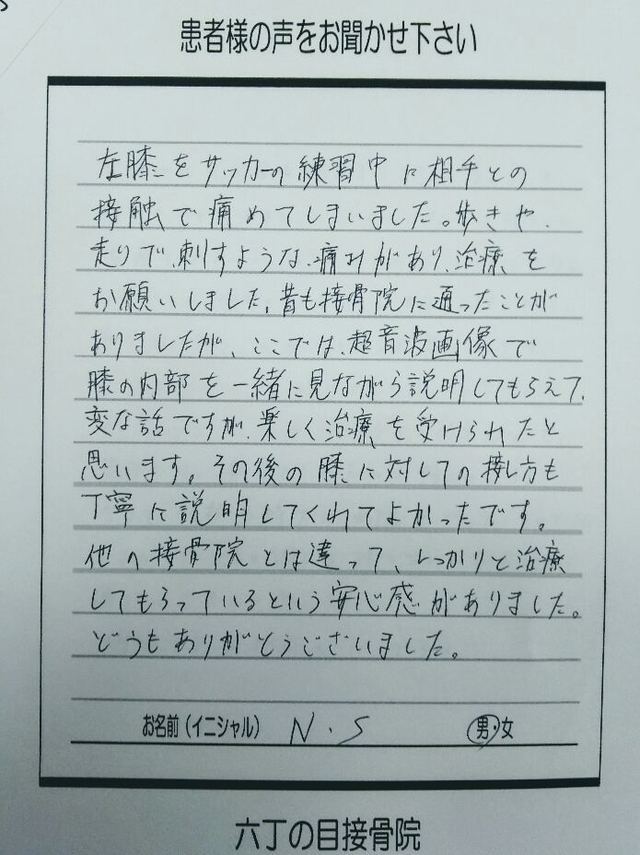 患者様の声をお聞かせ下さい
左膝をサッカーの練習中に相手との
接触で痛めてしまいました。歩きや、
走りで、刺すような、痛みがあり、治療を
お願いしました。昔も接骨院に通ったことが
ありましたが、ここでは、超音波画像で
膝の内部を一緒に見ながら説明してもらえて、
変な話ですが、楽しく治療を受けられたと
思います。その後の膝に対しての接し方も
丁寧に説明してくれてよかったです。
他の接骨院とは違って、しっかりと治療
してもらっているという安心感がありました。
どうもありがとうございました。
お名前(イニシャル) N.S 男・女
六丁の目接骨院